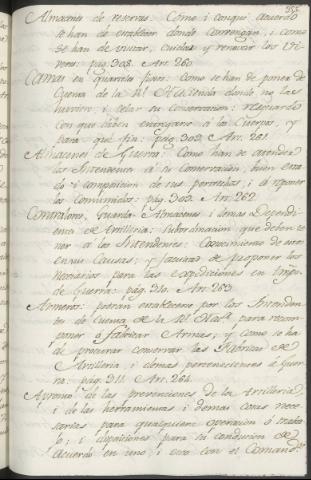 355
Almacenes de reserva: Como i conque acuerdo
se han de establecer donde convengan, i como
se han de visitar, cuidar y renovar los Vi-
veres: pag. 308. Art. 260
Camas en quarteles fixos: como se han de poner de
Cuenta de la Rl. Hacienda donde no las
huviere, i celar su conservacion: resguardo
con que deben entregarse a los Cuerpos, y
para que fin: pag. 309. Art. 261
Almacenes de Guerra: Como han de atender
los Intendentes à su conservacion, buen esta-
do i composicion de sus pertrechos, i à reponer
los consumidos: pag. 309. Art. 262
Contralores, Guarda Almacenes i demas Dependi-
entes de Artilleria: subordinacion que deben te-
ner a los Intendentes: Conocimiento de estos
en sus Causas; y facultad de proponer los
necesarios para las expediciones en tiempo
de Guerra: pag. 310. Art. 263
Armeros: podran establecerse por los Intenden-
tes de Cuenta de la Rl. Hasda. para recom-
poner ó fabricar Armas; y como se ha
de procurar conservar las Fabricas de
Artilleria, i demas pertenecientes à Guer-
ra: pag. 311. Art. 264
Apronto de las prevenciones de la Artilleria,
i de las herramientas i demas cosas nece-
sarias para qualquiera operacion ó traba-
jo; i disposiciones para su conducion de
acuerdo en uno, i otro con el Comandte.